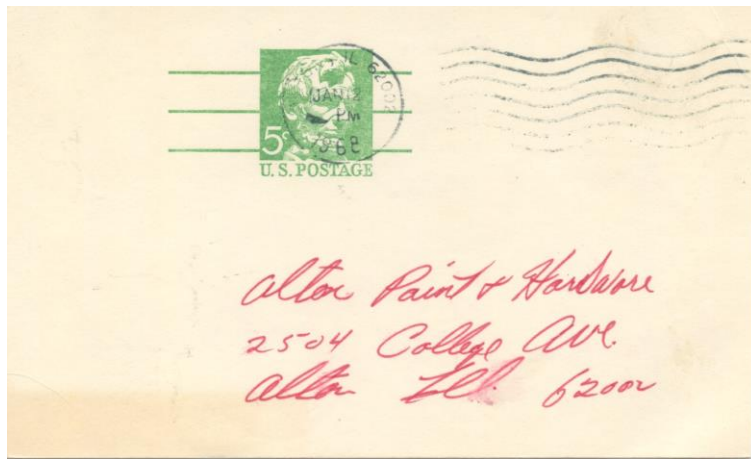 IL 62002
JAN 12
PM
1968
5¢
U.S. POSTAGE
Alton Paint & Hardware
2504 College Ave.
Alton Ill. 62002